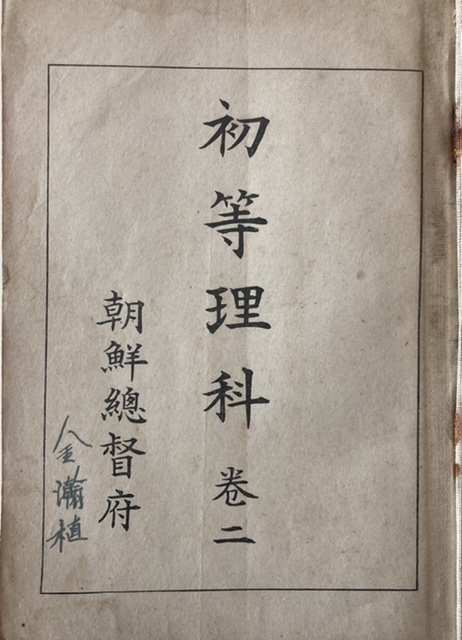 初等理科 卷二
朝鮮總督府
金瀚植